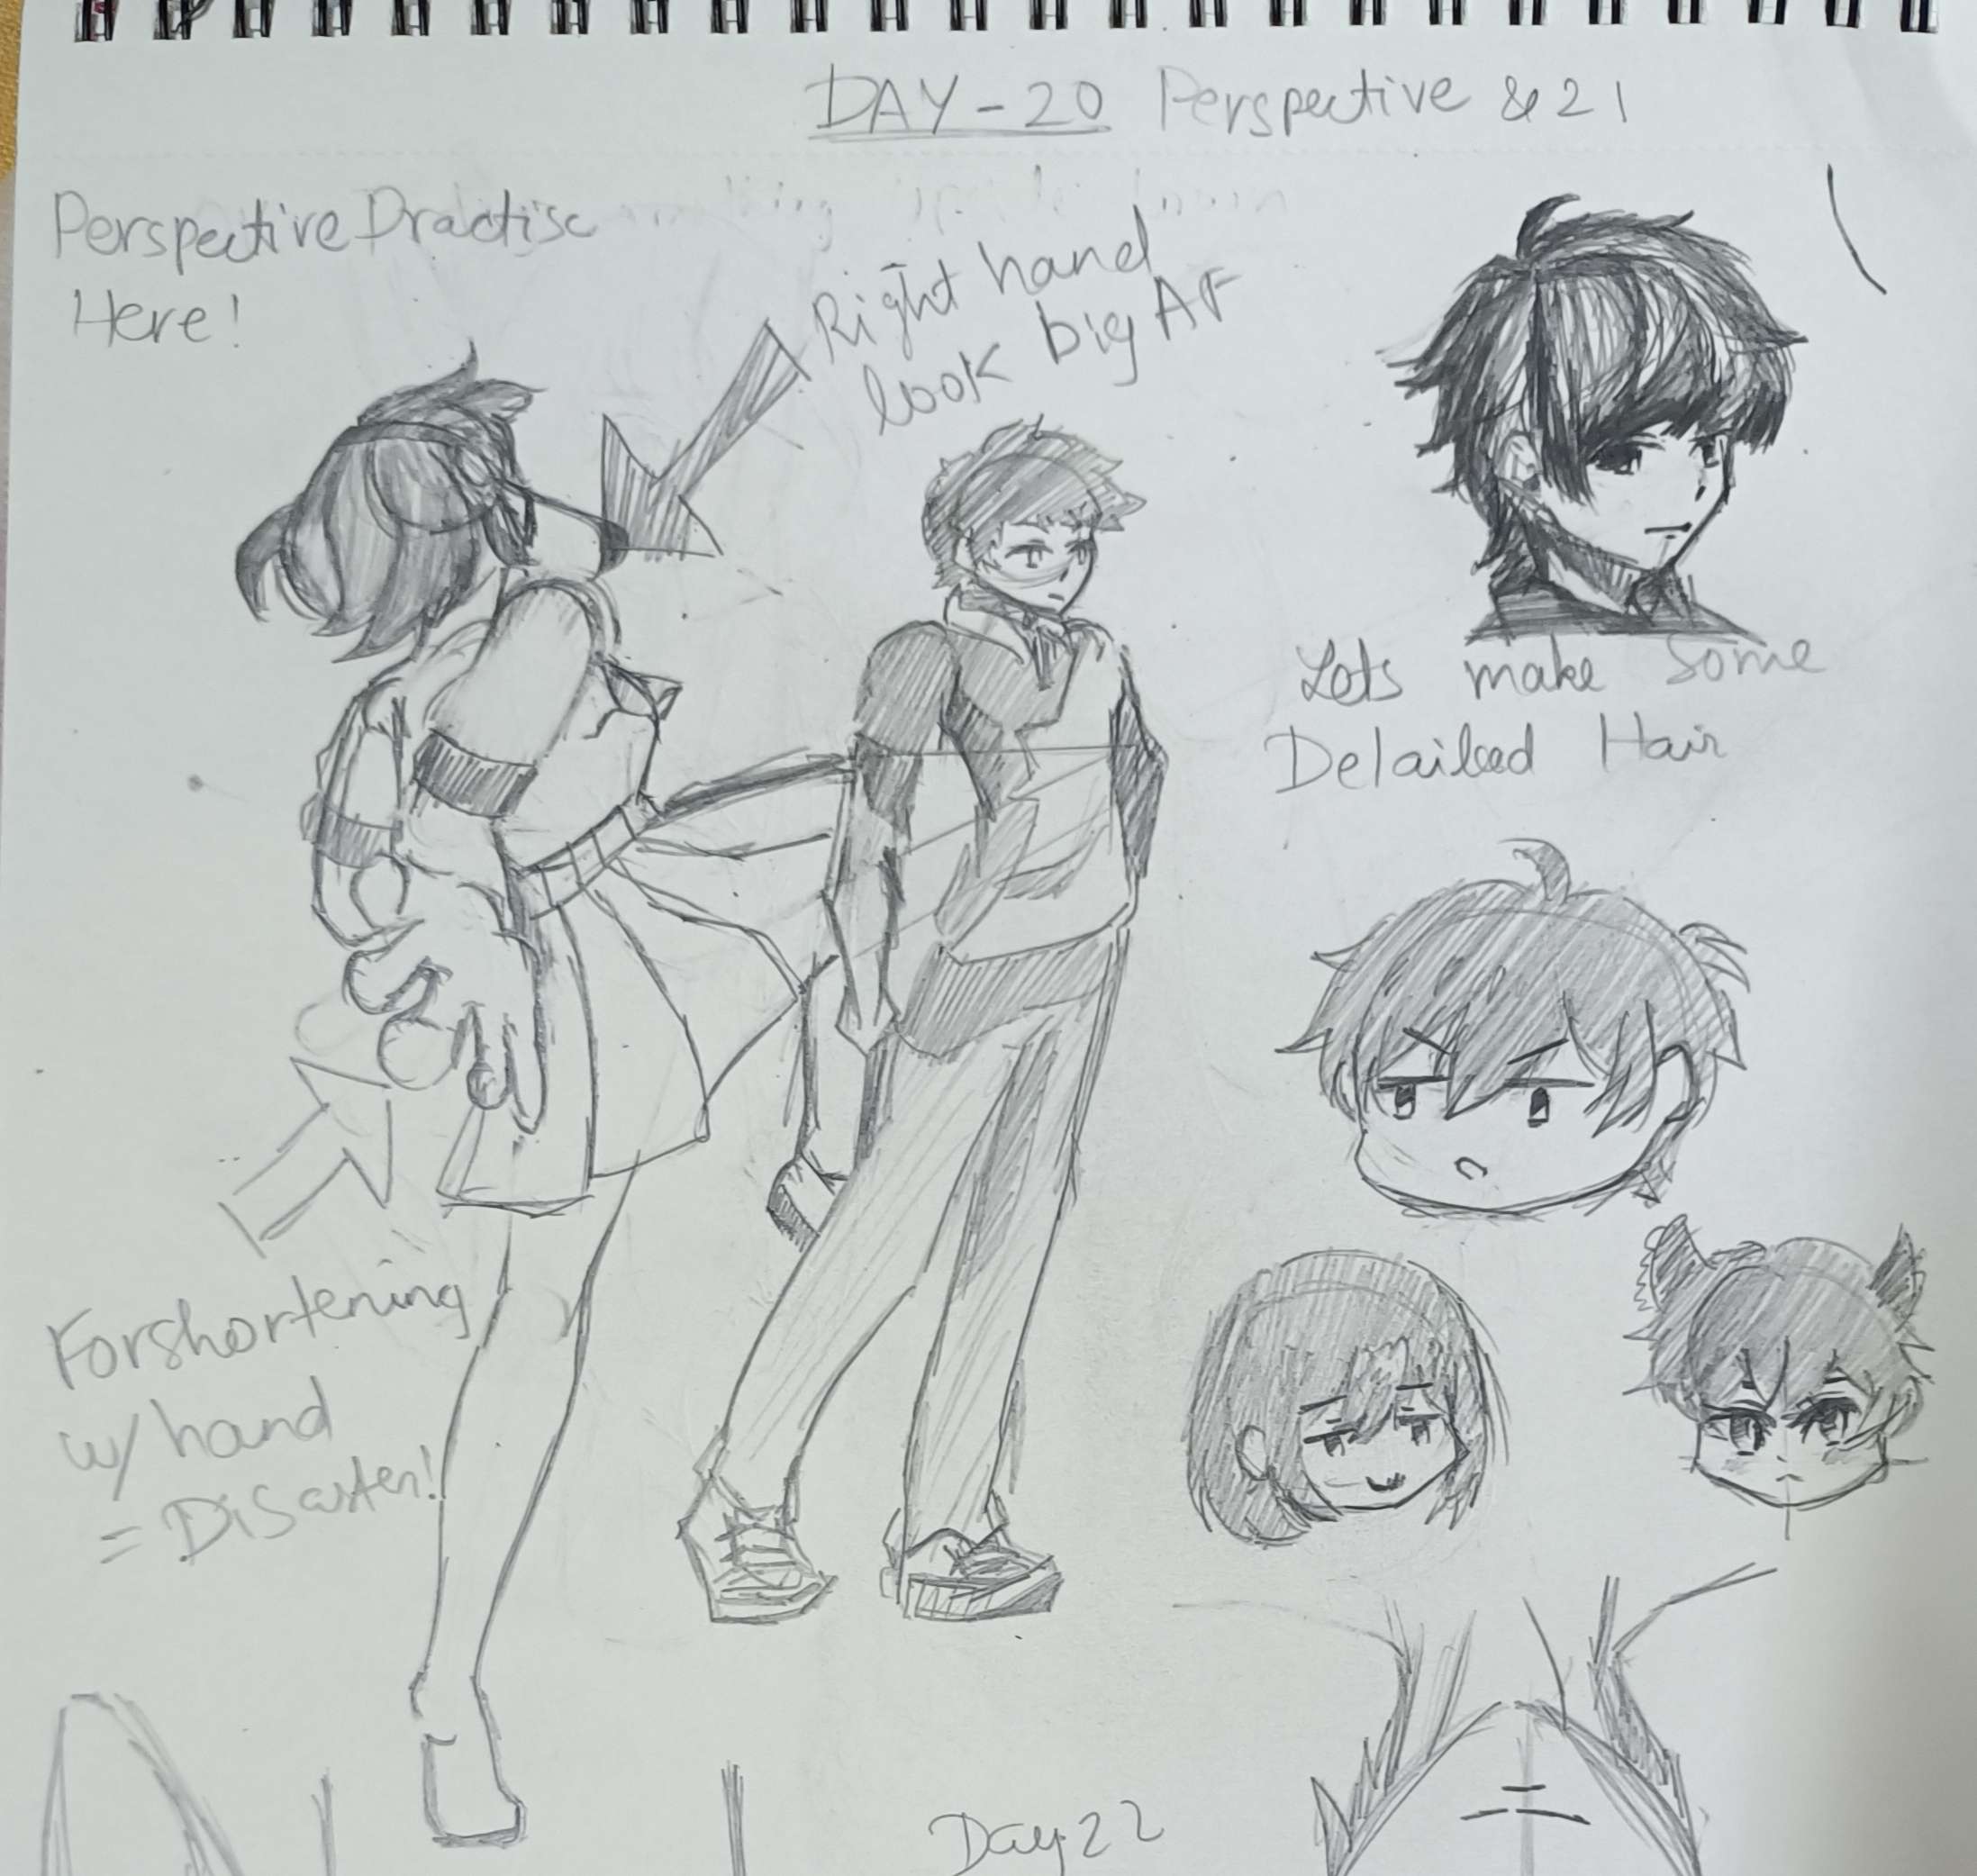 DAY - 20 Perspective & 21
Perspective Practise
Here!
Right hand
look big AF
Lets make some
Detailed Hair
Forshortening
w/ hand
= Disaster!
Day 22